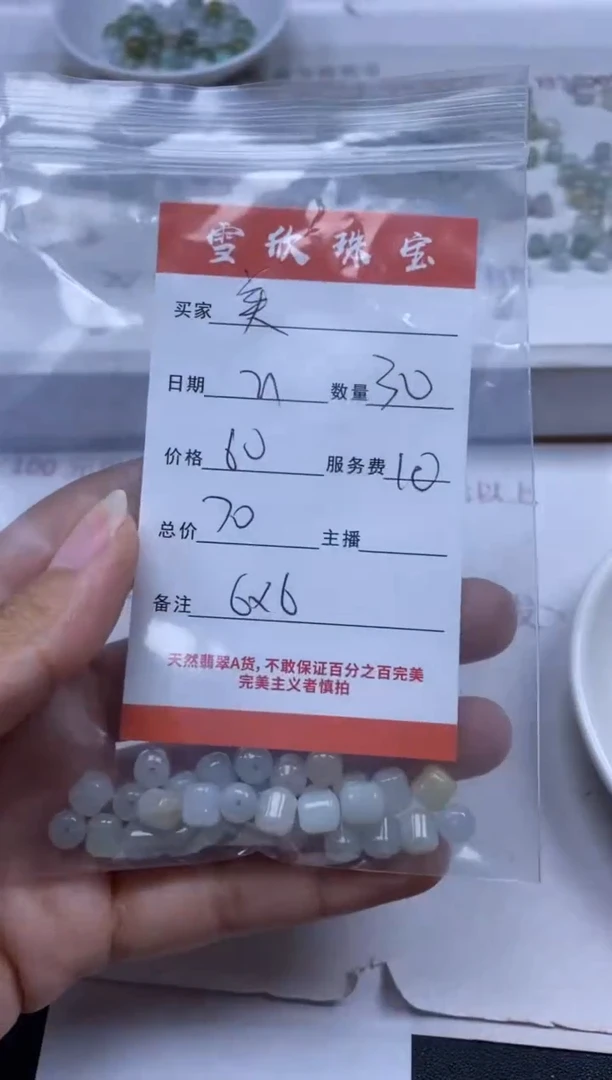 雪欣珠宝
买家 美
日期 21 数量 30
价格 60 服务费 10
总价 70 主播
备注 6x6
天然翡翠A货，不敢保证百分之百完美
完美主义者慎拍
100
以上